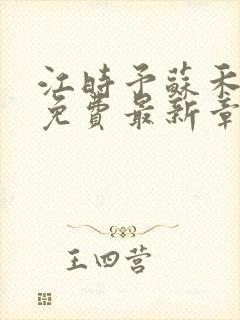 江時予蘇禾
免費最新章
王四营